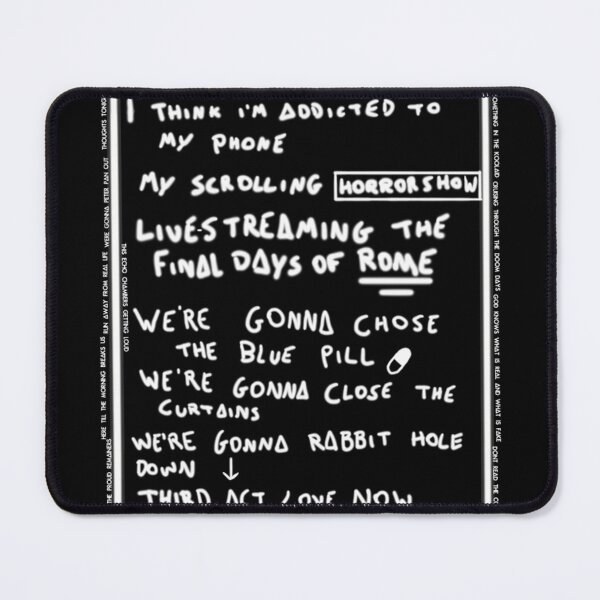 I THINK I'M ADDICTED TO
MY PHONE
MY SCROLLING HORRORSHOW
LIVE-STREAMING THE
FINAL DAYS OF ROME
WE'RE GONNA CHOSE
THE BLUE PILL
WE'RE GONNA CLOSE THE
CURTAINS
WE'RE GONNA RABBIT HOLE
DOWN ↓
THIRD ACT LOVE NOW
THE PROUD REMAINERS HERE TILL THE MORNING BREAKS US RUN AWAY FROM REAL LIFE WERE GONNA PETER PAN OUT THOUGHTS TONIG
THIS ECHO CHAMBERS GETTING LOUD
OMETHING IN THE KOOLAID CRUSING THROUGH THE DOOM DAYS GOD KNOWS WHAT IS REAL AND WHAT IS FAKE DONT READ THE CO